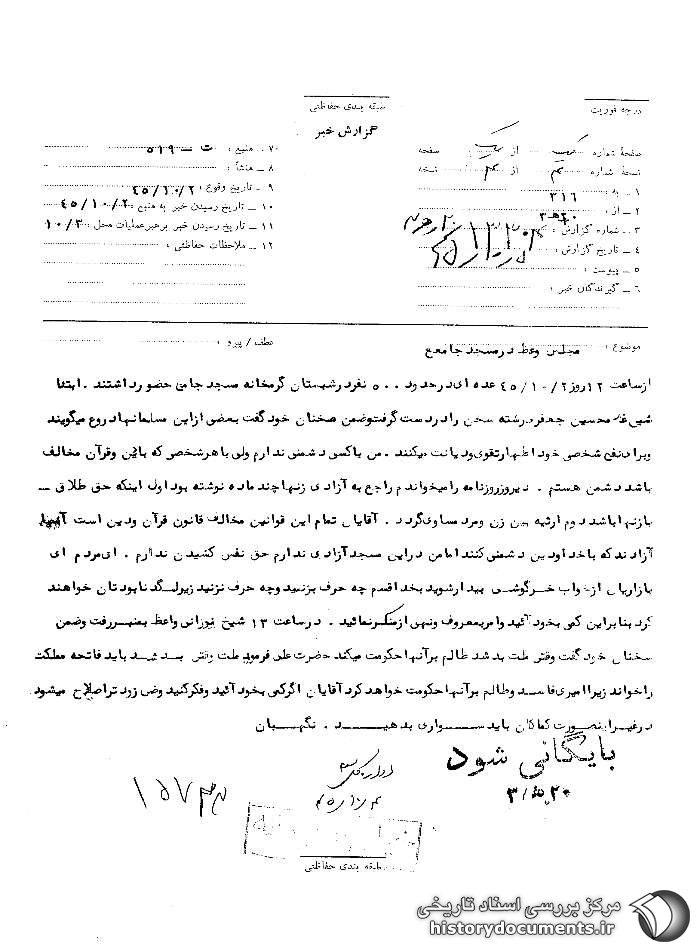 درجه فوریت
طبقه بندی حفاظتی
گزارش خبر
صفحهٔ شماره یک از یک صفحه
نسخهٔ شماره از نسخه
۱ ـ به : ۳۱۶
۲ ـ از : ۲۰ه۳
۳ ـ شمارهٔ گزارش :
۴ ـ تاریخ گزارش :
۵ ـ پیوست :
۶ ـ گیرندگان خبر :
۷۰ منبع : ت ـ ۵۱۹
۸ ـ منشأ :
۹ ـ تاریخ وقوع : ۴۵/۱۰/۲
۱۰ ـ تاریخ رسیدن خبر به منبع : ۴۵/۱۰/۲
۱۱ ـ تاریخ رسیدن خبر برهبر عملیات محل : ۱۰/۳
۱۲ ـ ملاحظات حفاظتی :
موضوع : مجلس وعظ در مسجد جامع
عطف / پیرو :
از ساعت ۱۲ روز ۴۵/۱۰/۲ عده ای در حدود ۵۰۰ نفر در شبستان گرمخانه مسجد جامی حضور داشتند . ابتدا
شیخ غلامحسین جعفری رشته سخن را در دست گرفت و ضمن سخنان خود گفت بعضی از این مسلمانها دروغ میگویند
و برای نفع شخصی خود اظهار تقوی و دیانت میکنند . من با کسی دشمنی ندارم ولی با هر شخصی که با دین و قرآن مخالف
باشد دشمن هستم . دیروز روزنامه را میخواندم راجع به آزادی زنها چند ماده نوشته بود اول اینکه حق طلاق ـ
با زنها باشد دوم ارثیه بین زن و مرد مساوی گردد . آقایان تمام این قوانین مخالف قانون قرآن و دین است آنها
آزادند که با خدا و دین دشمنی کنند اما من در این مسجد آزادی ندارم حق نفس کشیدن ندارم . ای مردم ای
بازاریان از خواب خرگوشی بیدار شوید بخدا قسم چه حرف بزنید و چه حرف نزنید زیر لگد نابودتان خواهند
کرد بنابراین کمی بخود آئید و امر بمعروف و نهی از منکر نمائید . در ساعت ۱۳ شیخ نورانی واعظ بمنبر رفت و ضمن
سخنان خود گفت وقتی ملت بد شد ظالم بر آنها حکومت میکند حضرت علی فرمود ملت وقتی بد شد باید فاتحه مملکت
را خواند زیرا امیری فاسد و ظالم بر آنها حکومت خواهد کرد آقایان اگر کمی بخود آئید و فکر کنید وضع زودتر اصلاح میشود
در غیر اینصورت کماکان باید سواری بدهید . نگهبان
بایگانی شود
طبقه بندی حفاظتی
مرکز بررسی اسناد تاریخی
historydocuments.ir